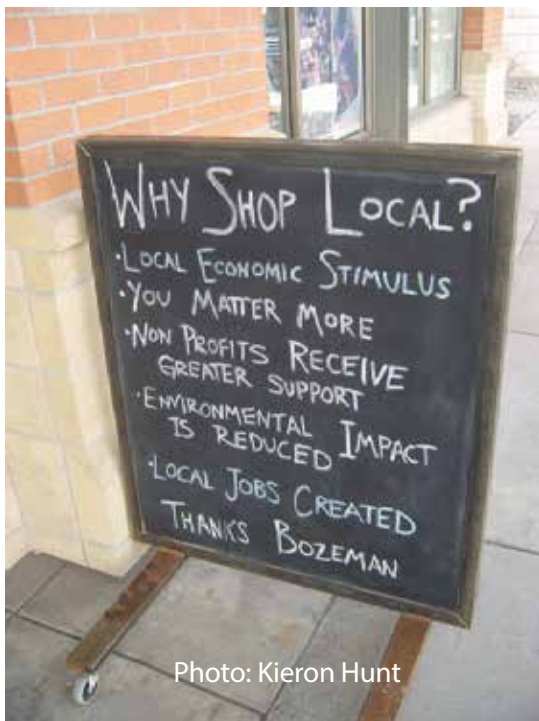 WHY SHOP LOCAL?
·LOCAL ECONOMIC STIMULUS
·YOU MATTER MORE
·NON PROFITS RECEIVE
GREATER SUPPORT
·ENVIRONMENTAL IMPACT
IS REDUCED
·LOCAL JOBS CREATED
THANKS BOZEMAN
Photo: Kieron Hunt